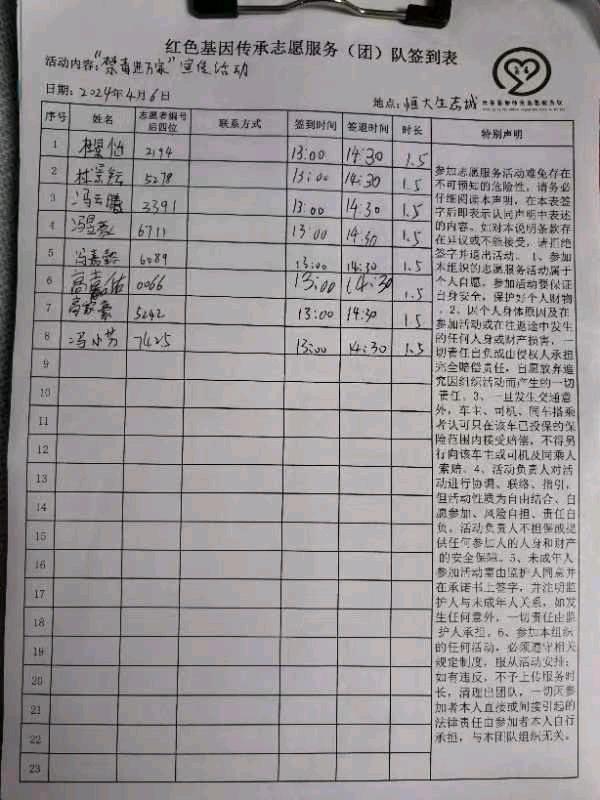 红色基因传承志愿服务（团）队签到表
活动内容:"禁毒进万家"宣传活动
日期: 2024年4月6日
地点: 恒大生态城
序号 姓名 志愿者编号后四位 联系方式 签到时间 签退时间 时长 特别声明
1 2194 13:00 14:30 1.5
2 5278 13:00 14:30 1.5
3 冯云腾 3391 13:00 14:30 1.5
4 6711 13:00 14:30 1.5
5 冯嘉懿 6089 13:00 14:30 1.5
6 高嘉佑 0066 13:00 14:30 1.5
7 5242 13:00 14:30 1.5
8 冯小芳 7425 13:00 14:30 1.5
9
10
11
12
13
14
15
16
17
18
19
20
21
22
23
参加志愿服务活动难免存在
不可预知的危险性，请务必
仔细阅读本声明，在本表签
字后即表示认同声明中表述
的内容。如对本说明条款存
在异议或不能接受，请拒绝
签字并退出活动。1、参加
本组织的志愿服务活动属于
个人自愿，参加活动要保证
自身安全，保护好个人财物
。2、因个人身体原因及在
参加活动或在往返途中发生
的任何人身或财产损害，一
切责任自负或由侵权人承担
完全赔偿责任，自愿放弃追
究因组织活动而产生的一切
责任。3、一旦发生交通意
外，车主、司机、同车搭乘
者认可只在该车已投保的保
险范围内接受赔偿，不得另
行向该车主或司机及同乘人
索赔。4、活动负责人对活
动进行协调、联络、指引，
但活动性质为自由结合、自
愿参加、风险自担、责任自
负。活动负责人不担保或提
供任何参加人的人身和财产
的安全保障。5、未成年人
参加活动需由监护人同意并
在承诺书上签字，并注明监
护人与未成年人关系，如发
生任何意外，一切责任由监
护人承担。6、参加本组织
的任何活动，必须遵守相关
规定制度，服从活动安排；
如有违反，不予上传服务时
长，清理出团队，一切因参
加者本人直接或间接引起的
法律责任由参加者本人自行
承担，与本团队组织无关。